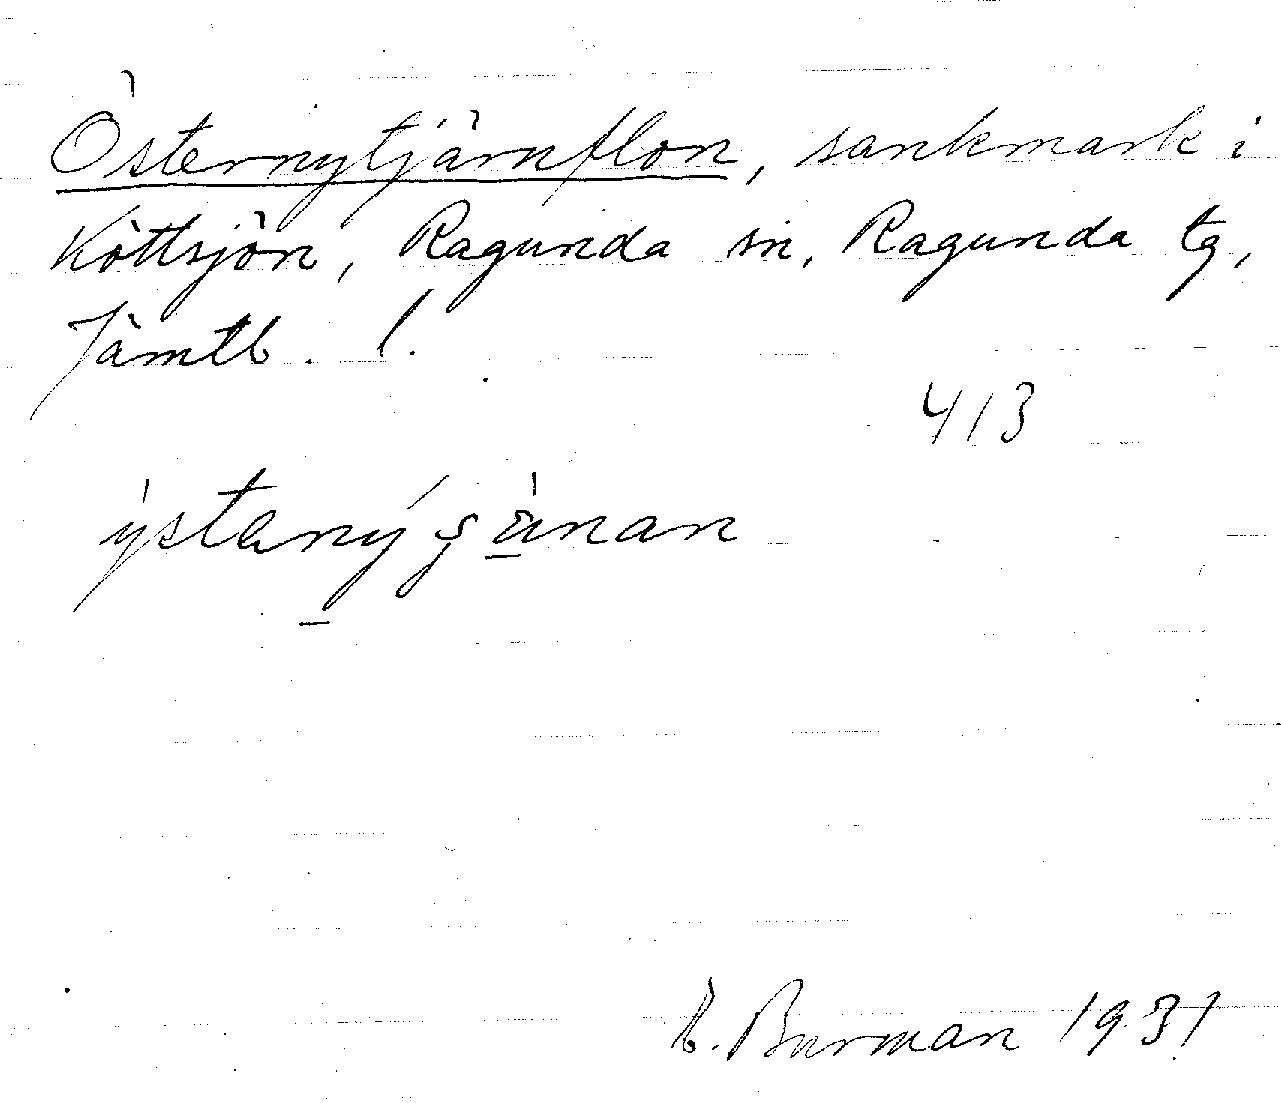 Östernytjärnflon, sankmark i
Köttsjön, Ragunda sn, Ragunda tg,
Jämtl. l.
413
E. Burman 1931